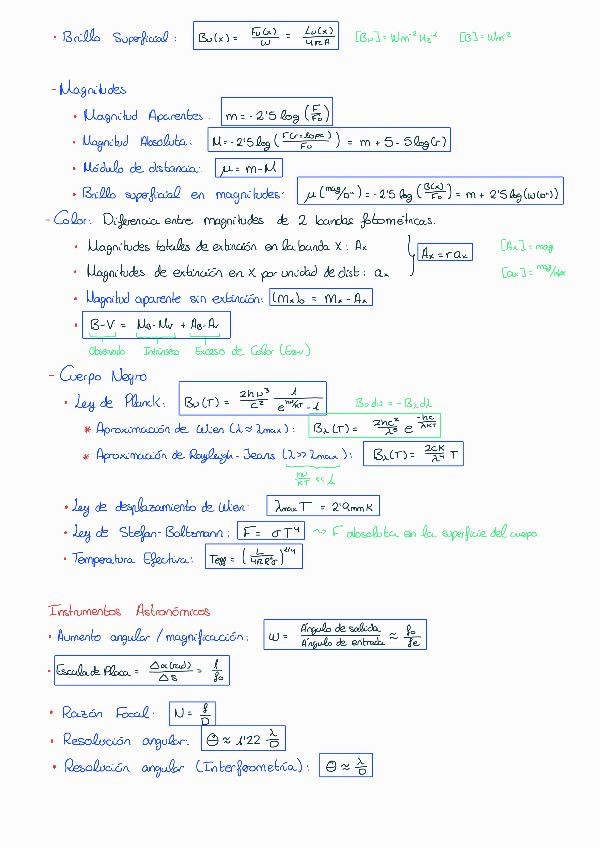 · Brillo Superficial: Bν(x) = Fν(x)/ω = Lν(x)/4πA [Bν] = Wm⁻²Hz⁻¹ [B] = Wm⁻²
- Magnitudes
· Magnitud Aparentes: m = -2'5 log (F/F₀)
· Magnitud Absoluta: M = -2'5 log (F(r=10pc)/F₀) = m + 5 - 5 log(r)
· Módulo de distancia: μ = m - M
· Brillo superficial en magnitudes: μ (mag/□") = -2'5 log (B(x)/F₀) = m + 2'5 log(ω(□"))
- Color: Diferencia entre magnitudes de 2 bandas fotométricas.
· Magnitudes totales de extinción en la banda X: Aₓ
· Magnitudes de extinción en X por unidad de dist: aₓ } Aₓ = r aₓ [Aₓ] = mag [aₓ] = mag/kpc
· Magnitud aparente sin extinción: (mₓ)₀ = mₓ - Aₓ
· B-V = M_B - M_V + A_B - A_V
Observado Intrínseco Exceso de Color (E_B-V)
- Cuerpo Negro
· Ley de Planck: Bν(T) = 2hν³/c² 1/(e^(hν/KT) - 1) Bν dν = -Bλ dλ
* Aproximación de Wien (λ ≈ λmax): Bλ(T) = 2hc²/λ⁵ e^(-hc/λKT)
* Aproximación de Rayleigh-Jeans (λ >> λmax): Bλ(T) = 2cK/λ⁴ T
hν/KT << 1
· Ley de desplazamiento de Wien: λmax T = 2'9 mm K
· Ley de Stefan-Boltzmann: F = σT⁴ ~> F absoluta en la superficie del cuerpo
· Temperatura Efectiva: Teff = (L/4πR²σ)^1/4
Instrumentos Astronómicos
· Aumento angular / magnificación: ω = Ángulo de salida/Ángulo de entrada ≈ f₀/fe
· Escala de Placa = Δα(rad)/Δs = 1/f₀
· Razón Focal: N = f/D
· Resolución angular: Θ ≈ 1'22 λ/D
· Resolución angular (Interferometría): Θ ≈ λ/D